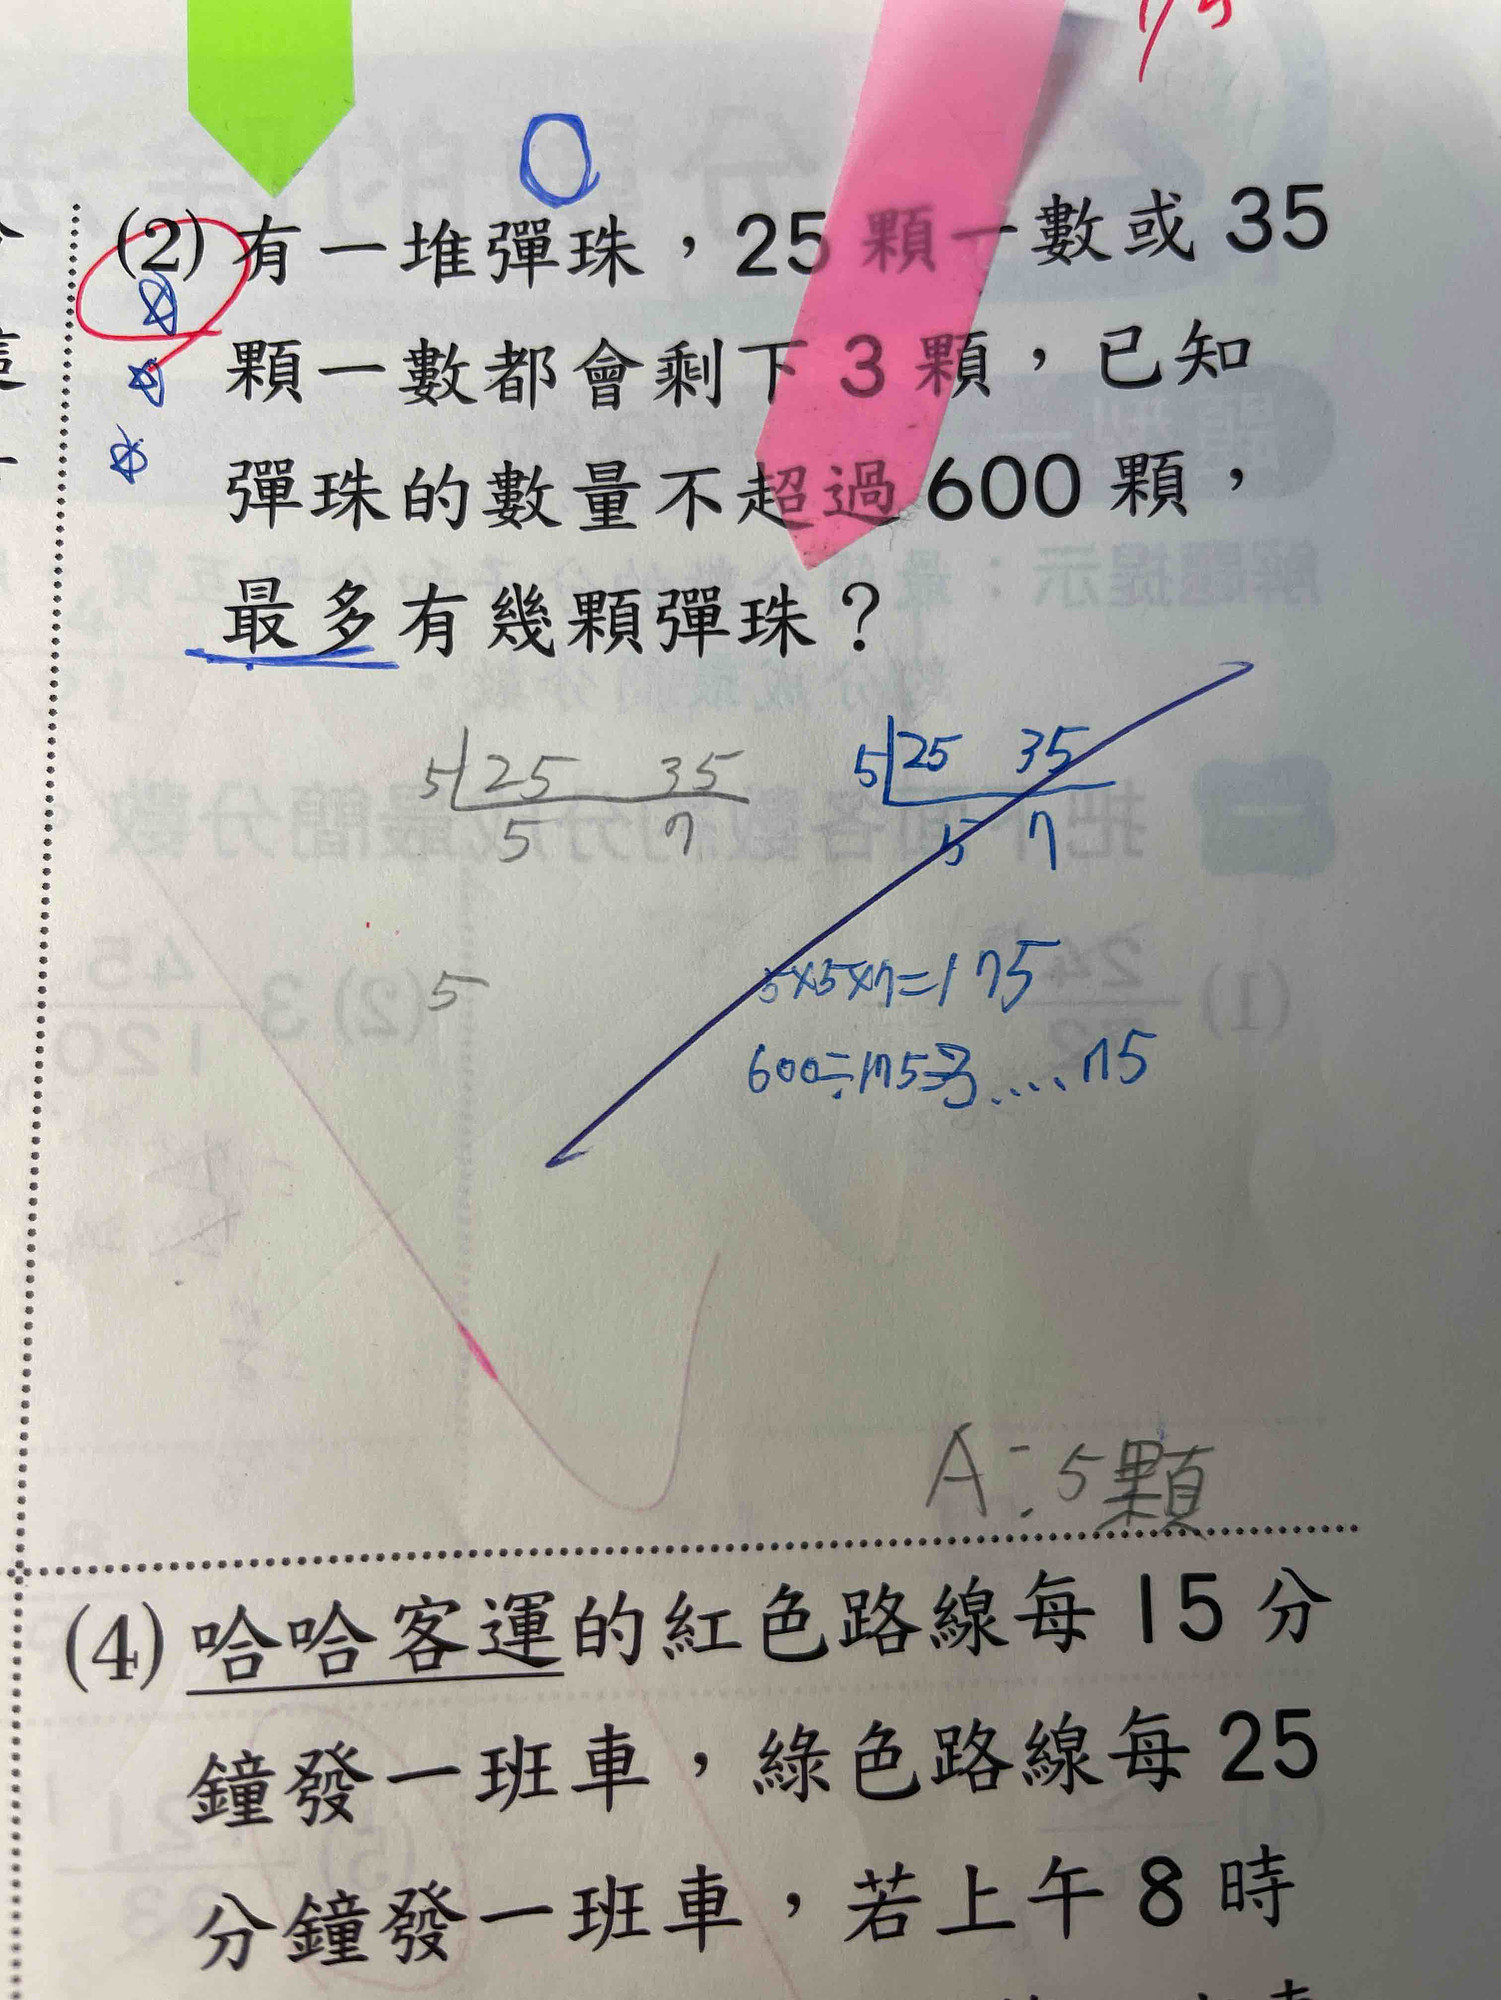 (2) 有一堆彈珠，25 顆一數或 35
顆一數都會剩下 3 顆，已知
彈珠的數量不超過 600 顆，
最多有幾顆彈珠？
5 25 35
5 7
5 25 35
5 7
5
5×5×7=175
600÷175=3....75
A：5顆
(4) 哈哈客運的紅色路線每 15 分
鐘發一班車，綠色路線每 25
分鐘發一班車，若上午 8 時